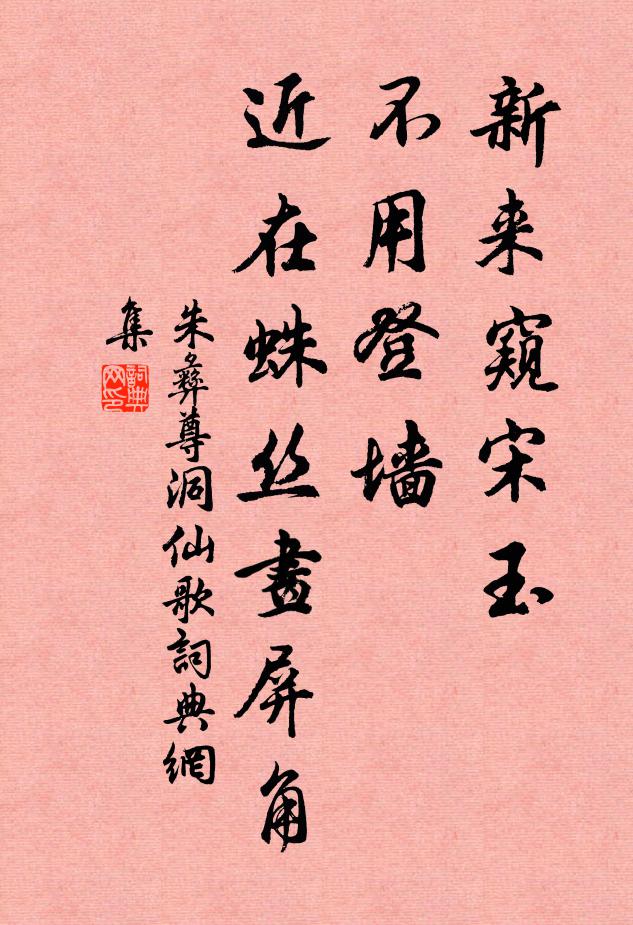 新来窥宋玉
不用登墙
近在蛛丝畫屏角
朱彝尊洞仙歌詞典網
集
詞典网印